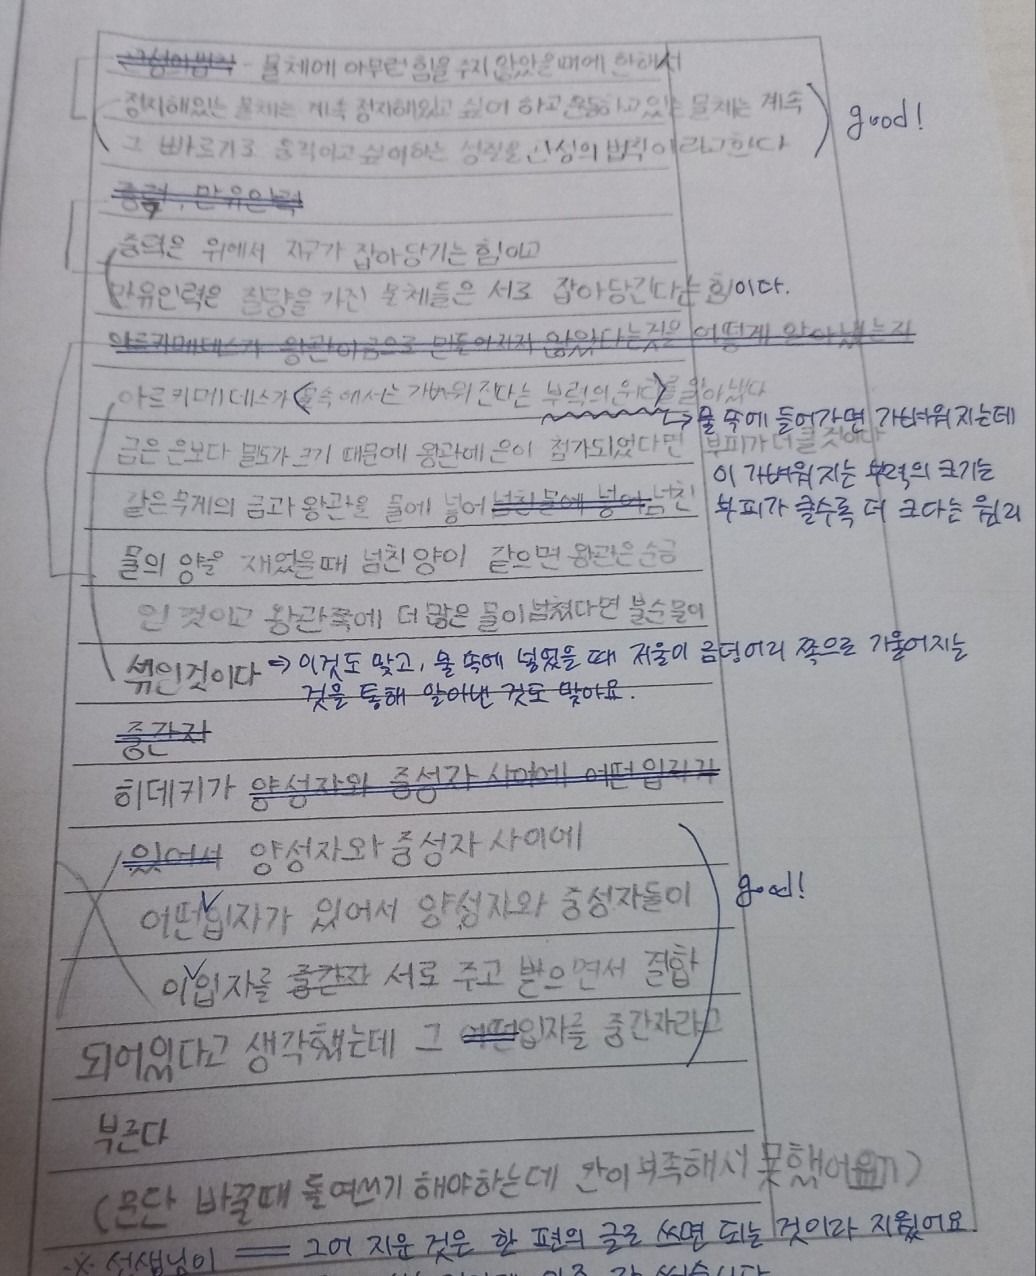 관성의법칙 - 물체에 아무런 힘을 주지 않았을때에 한해서
정지해있는 물체는 계속 정지해있고 싶어 하고 운동하고 있는 물체는 계속
good!
그 빠르기로 움직이고 싶어하는 성질을 관성의 법칙이라고한다
중력, 만유인력
중력은 위에서 지구가 잡아당기는 힘이고
만유인력은 질량을 가진 물체들은 서로 잡아당긴다는 힘이다.
아르키메데스가 왕관이 금으로 만들어지지 않았다는것을 어떻게 알아냈는지
아르키메데스가 물속에서는 가벼워진다는 부력의 원리를 알아냈다
→ 물 속에 들어가면 가벼워지는데
금은 은보다 밀도가 크기 때문에 왕관에 은이 첨가되었다면 부피가 더 클 것이다
이 가벼워지는 부력의 크기는
같은 무게의 금과 왕관을 물에 넣어 넘친물에 넣어 넘친
부피가 클수록 더 크다는 원리
물의 양을 재었을때 넘친 양이 같으면 왕관은 순금
인 것이고 왕관쪽에 더 많은 물이 넘쳤다면 불순물이
섞인것이다 → 이것도 맞고, 물 속에 넣었을 때 저울이 금덩어리 쪽으로 기울어지는
것을 통해 알아낸 것도 맞아요.
중간자
히데키가 양성자와 중성자 사이에 어떤입자가
있어서 양성자와 중성자 사이에
어떤입자가 있어서 양성자와 중성자들이
good!
이입자를 중간자 서로 주고 받으면서 결합
되어있다고 생각했는데 그 어떤입자를 중간자라고
부른다
(문단 바꿀때 들여쓰기 해야하는데 칸이 부족해서 못했어요ㅠ)
※ 선생님이 == 그어 지운 것은 한 편의 글로 쓰면 되는 것이라 지웠어요.